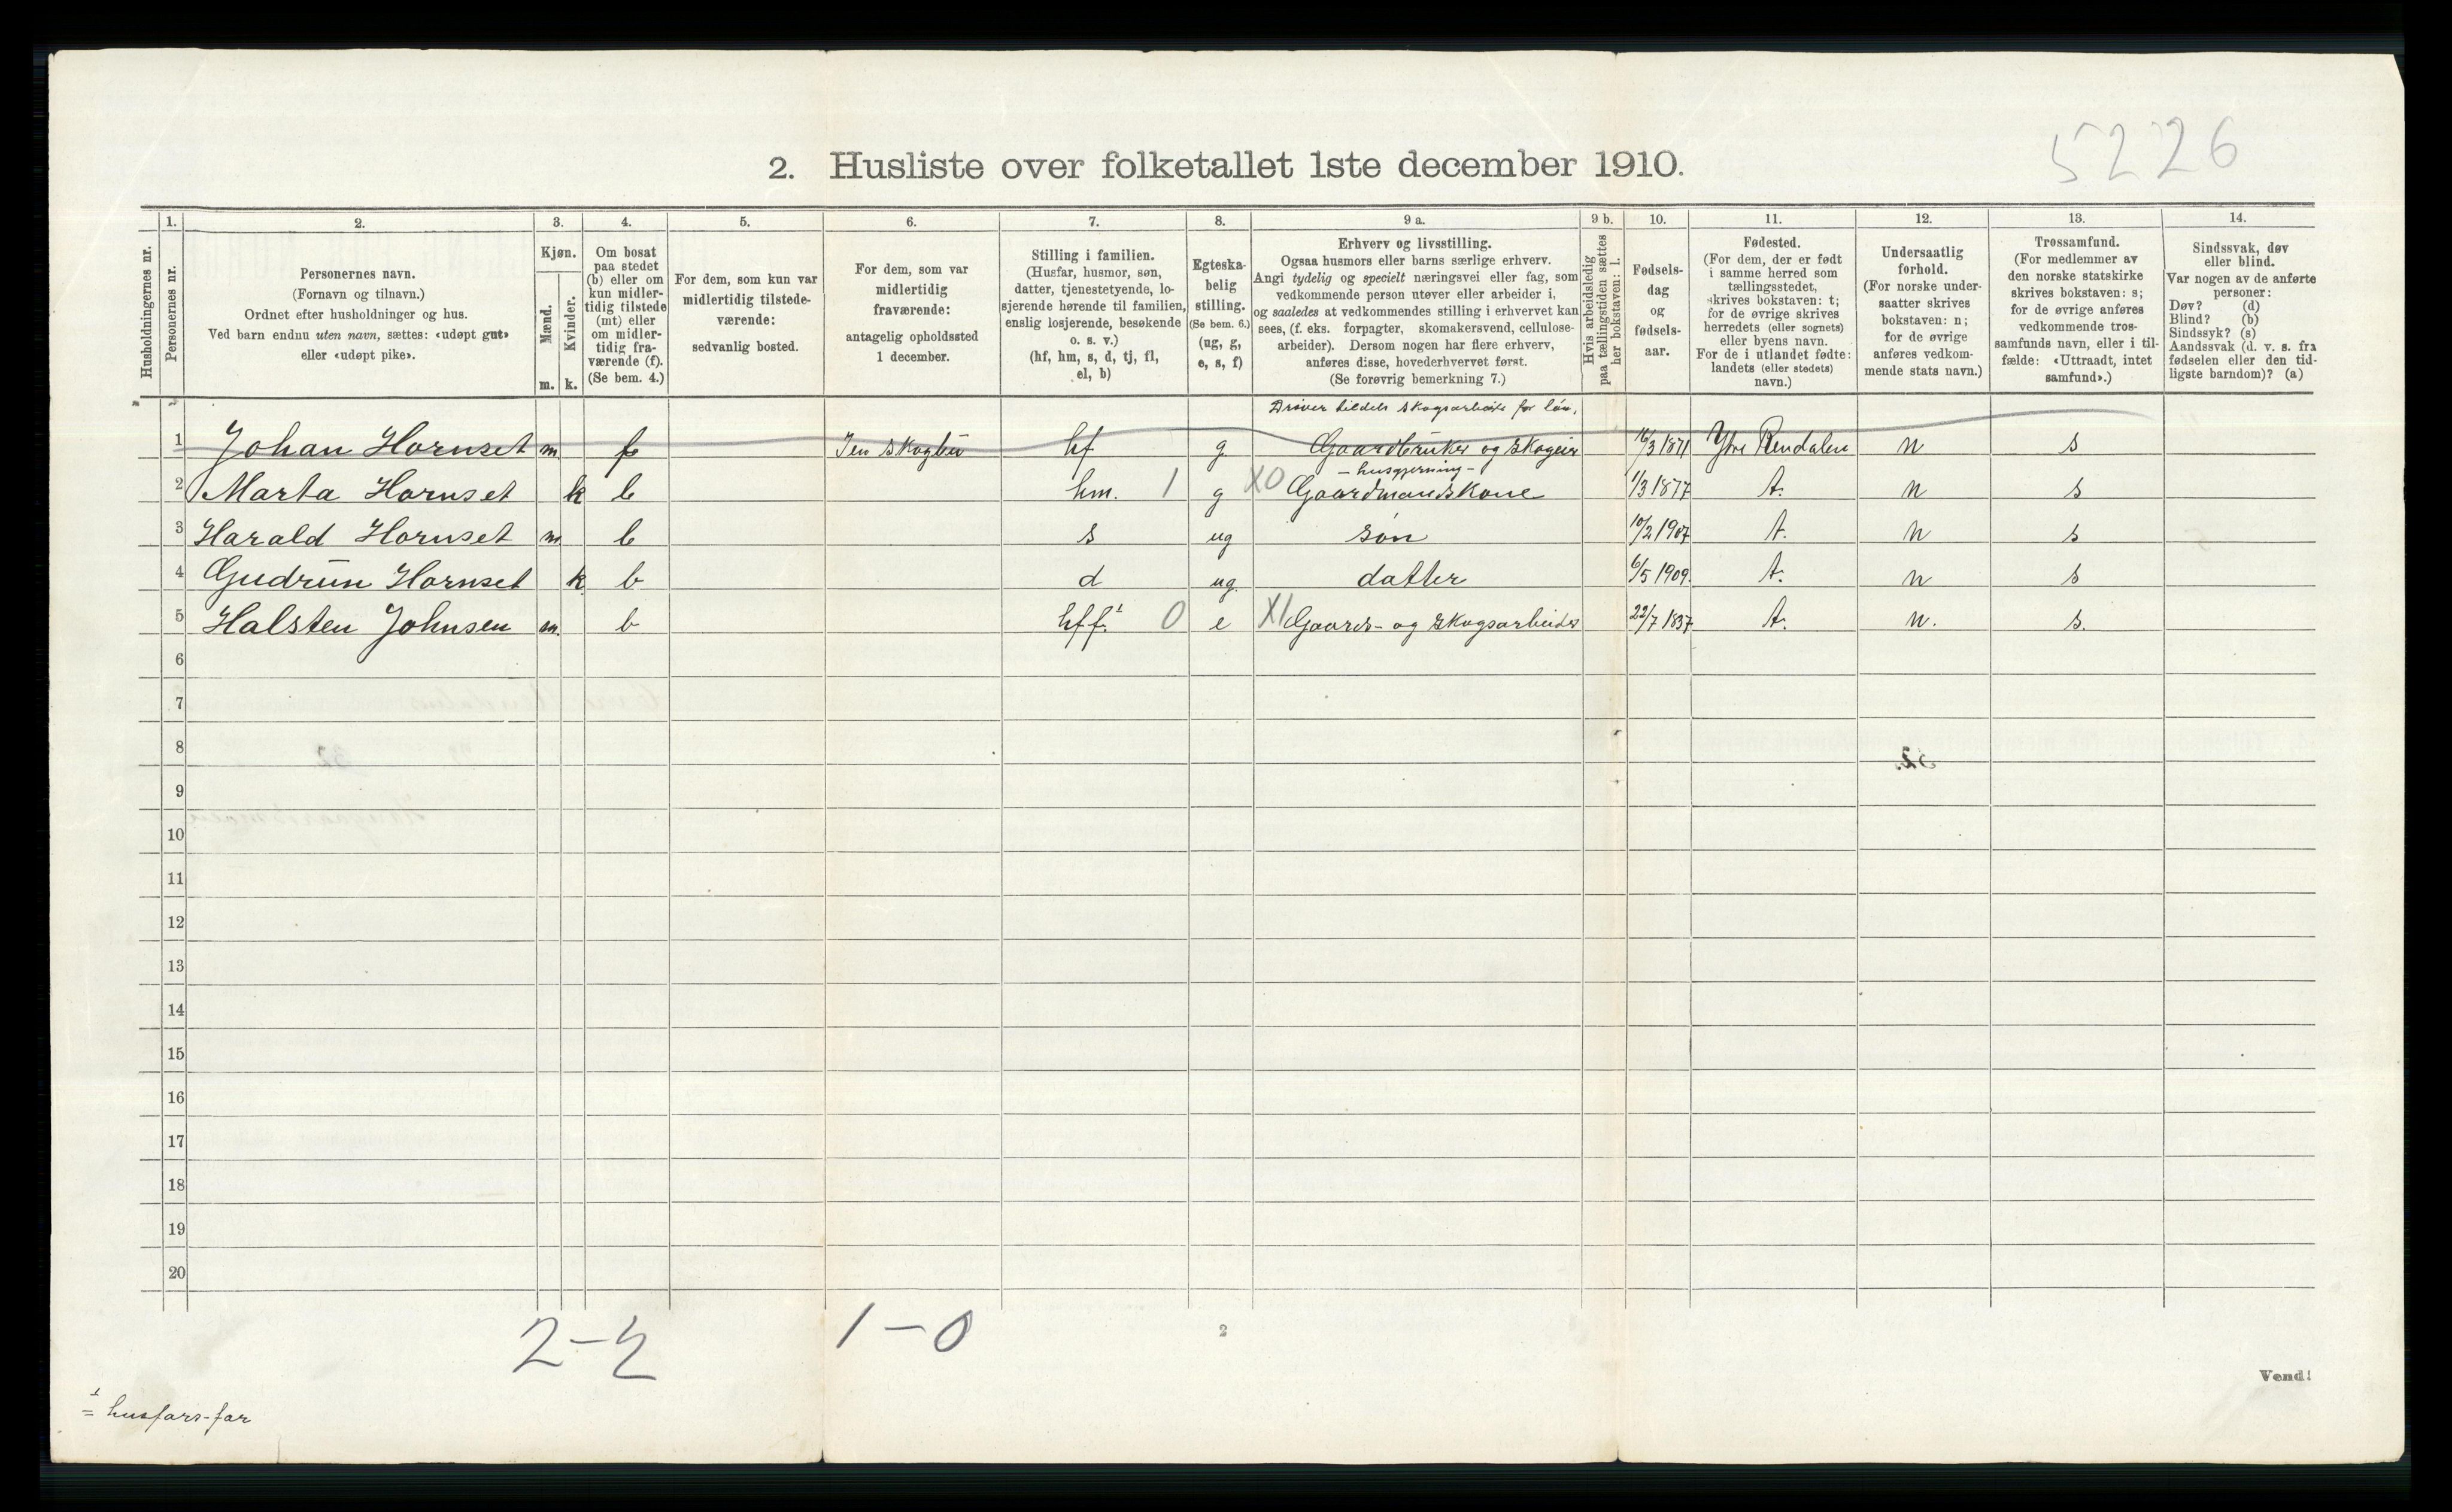 5226
2. Husliste over folketallet 1ste december 1910.
Husholdningernes nr.
1.
Personernes nr.
2.
Personernes navn.
(Fornavn og tilnavn.)
Ordnet efter husholdninger og hus.
Ved barn endnu uten navn, sættes: «udøpt gut»
eller «udøpt pike».
3.
Kjøn.
Mænd.
Kvinder.
m. k.
4.
Om bosat
paa stedet
(b) eller om
kun midler-
tidig tilstede
(mt) eller
om midler-
tidig fra-
værende (f).
(Se bem. 4.)
5.
For dem, som kun var
midlertidig tilstede-
værende:
sedvanlig bosted.
6.
For dem, som var
midlertidig
fraværende:
antagelig opholdssted
1 december.
7.
Stilling i familien.
(Husfar, husmor, søn,
datter, tjenestetyende, lo-
sjerende hørende til familien,
enslig losjerende, besøkende
o. s. v.)
(hf, hm, s, d, tj, fl,
el, b)
8.
Egteska-
belig
stilling.
(Se bem. 6.)
(ug, g,
e, s, f)
9 a.
Erhverv og livsstilling.
Ogsaa husmors eller barns særlige erhverv.
Angi tydelig og specielt næringsvei eller fag, som
vedkommende person utøver eller arbeider i,
og saaledes at vedkommendes stilling i erhvervet kan
sees, (f. eks. forpagter, skomakersvend, cellulose-
arbeider). Dersom nogen har flere erhverv,
anføres disse, hovederhvervet først.
(Se forøvrig bemerkning 7.)
9 b.
Hvis arbeidsledig
paa tællingstiden sættes
her bokstaven: l.
10.
Fødsels-
dag
og
fødsels-
aar.
11.
Fødested.
(For dem, der er født
i samme herred som
tællingsstedet,
skrives bokstaven: t;
for de øvrige skrives
herredets (eller sognets)
eller byens navn.
For de i utlandet fødte:
landets (eller stedets)
navn.)
12.
Undersaatlig
forhold.
(For norske under-
saatter skrives
bokstaven: n;
for de øvrige
anføres vedkom-
mende stats navn.)
13.
Trossamfund.
(For medlemmer av
den norske statskirke
skrives bokstaven: s;
for de øvrige anføres
vedkommende tros-
samfunds navn, eller i til-
fælde: «Uttraadt, intet
samfund».)
14.
Sindssvak, døv
eller blind.
Var nogen av de anførte
personer:
Døv? (d)
Blind? (b)
Sindssyk? (s)
Aandssvak (d. v. s. fra
fødselen eller den tid-
ligste barndom)? (a)
Driver tildels skogsarbeide for løn.
1 Johan Hornset m f I en skogbu hf g Gaardbruker og skogeier 16/3 1871 Ytre Rendalen n s
- husgjerning -
2 Marta Hornset k b hm. 1 g X0 Gaardmandskone 1/3 1877 t. n s
3 Harald Hornset m b s ug søn 10/2 1907 t. n s
4 Gudrun Hornset k b d ug. datter 6/5 1909. t. n s
5 Halsten Johnsen m. b hff.¹ 0 e X1 Gaards- og skogsarbeider 22/7 1837 t. n. s.
6
7
8
9
10
11
12
13
14
15
16
17
18
19
20
2-2 1-0
2
Vend!
¹ = husfars-far